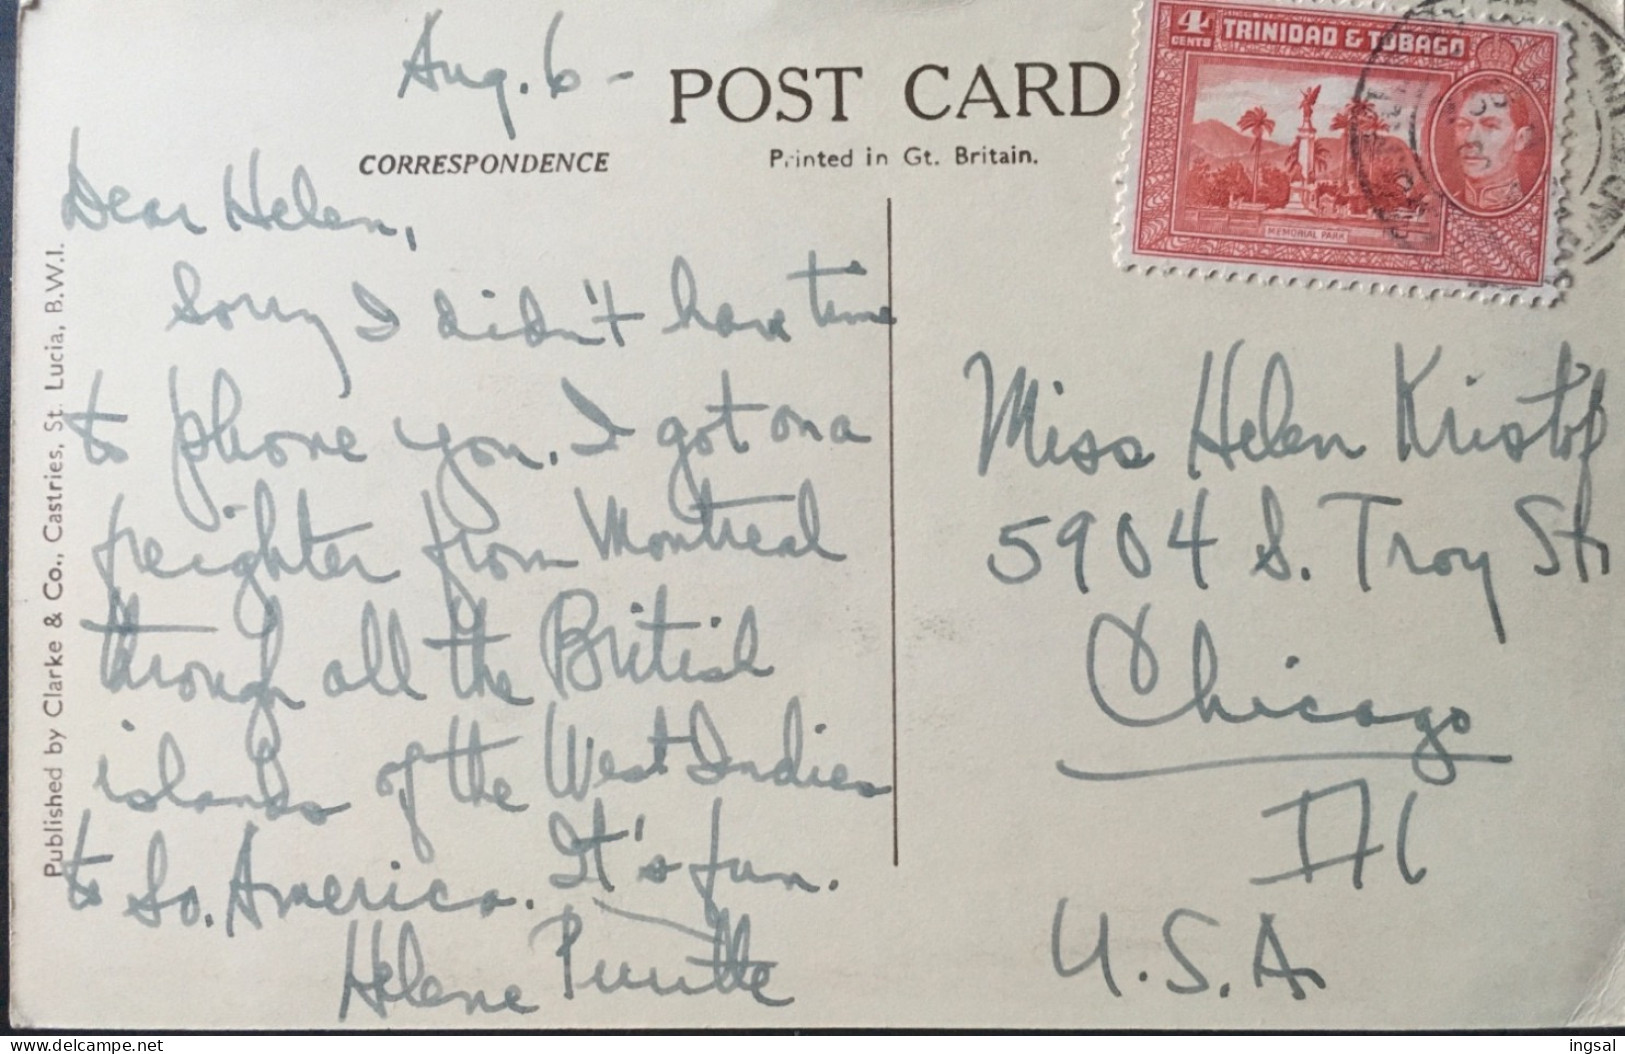 Aug. 6 -
POST CARD
CORRESPONDENCE
Printed in Gt. Britain.
4 CENTS
TRINIDAD & TOBAGO
MEMORIAL PARK
Published by Clarke & Co., Castries, St. Lucia, B.W.I.
Dear Helen,
Sorry I didn't have time
to phone you. I got on a
freighter from Montreal
through all the British
islands of the West Indies
to So. America. It's fun.
Helene
Miss Helen Kristof
5904 S. Troy St.
Chicago
Ill
U.S.A.
delcampe.net
ingsal